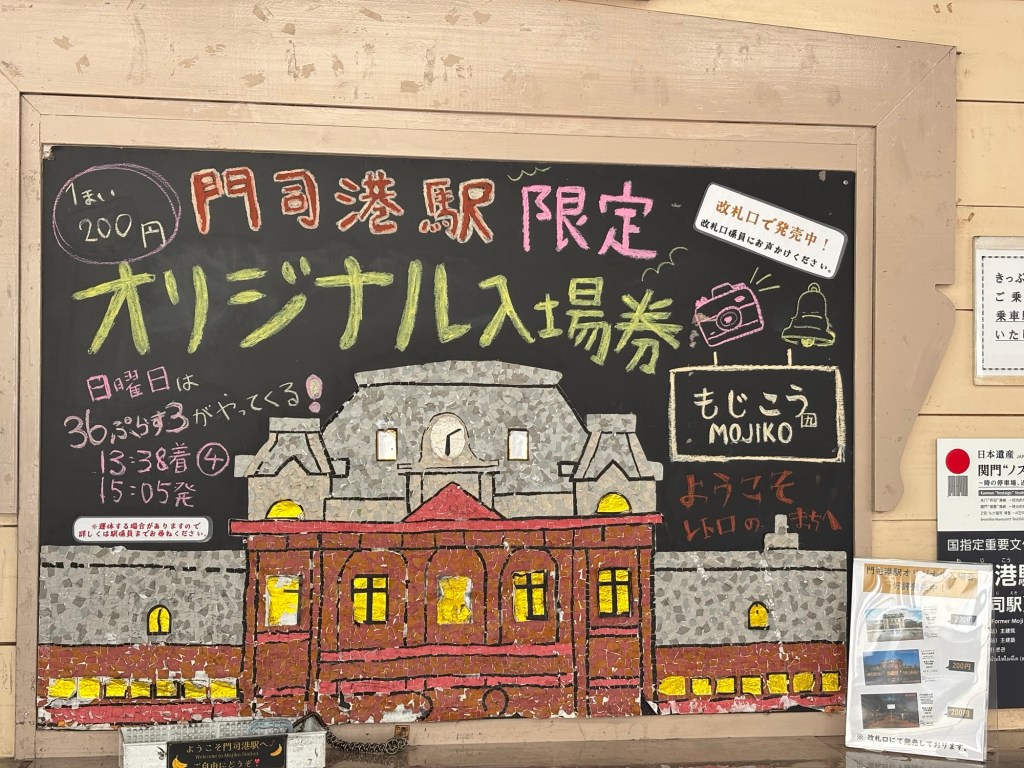 1まい
200円
門司港駅 限定
オリジナル入場券
改札口で発売中！
改札口係員にお声かけください。
日曜日は
36ぷらす3がやってくる！
13:38着④
15:05発
※運休する場合がありますので
詳しくは駅係員までお尋ねください。
もじこう 九
MOJIKO
ようこそ
レトロの まちへ
きっぷ
ご乗
乗車
いた
日本遺産
関門“ノス
～時の停車場、
国指定重要文化
港駅
司駅
Former Moji
200円
200円
※ 改札口にて発売しております。
ようこそ門司港駅へ
Welcome to Mojiko Station
ご自由にどうぞ